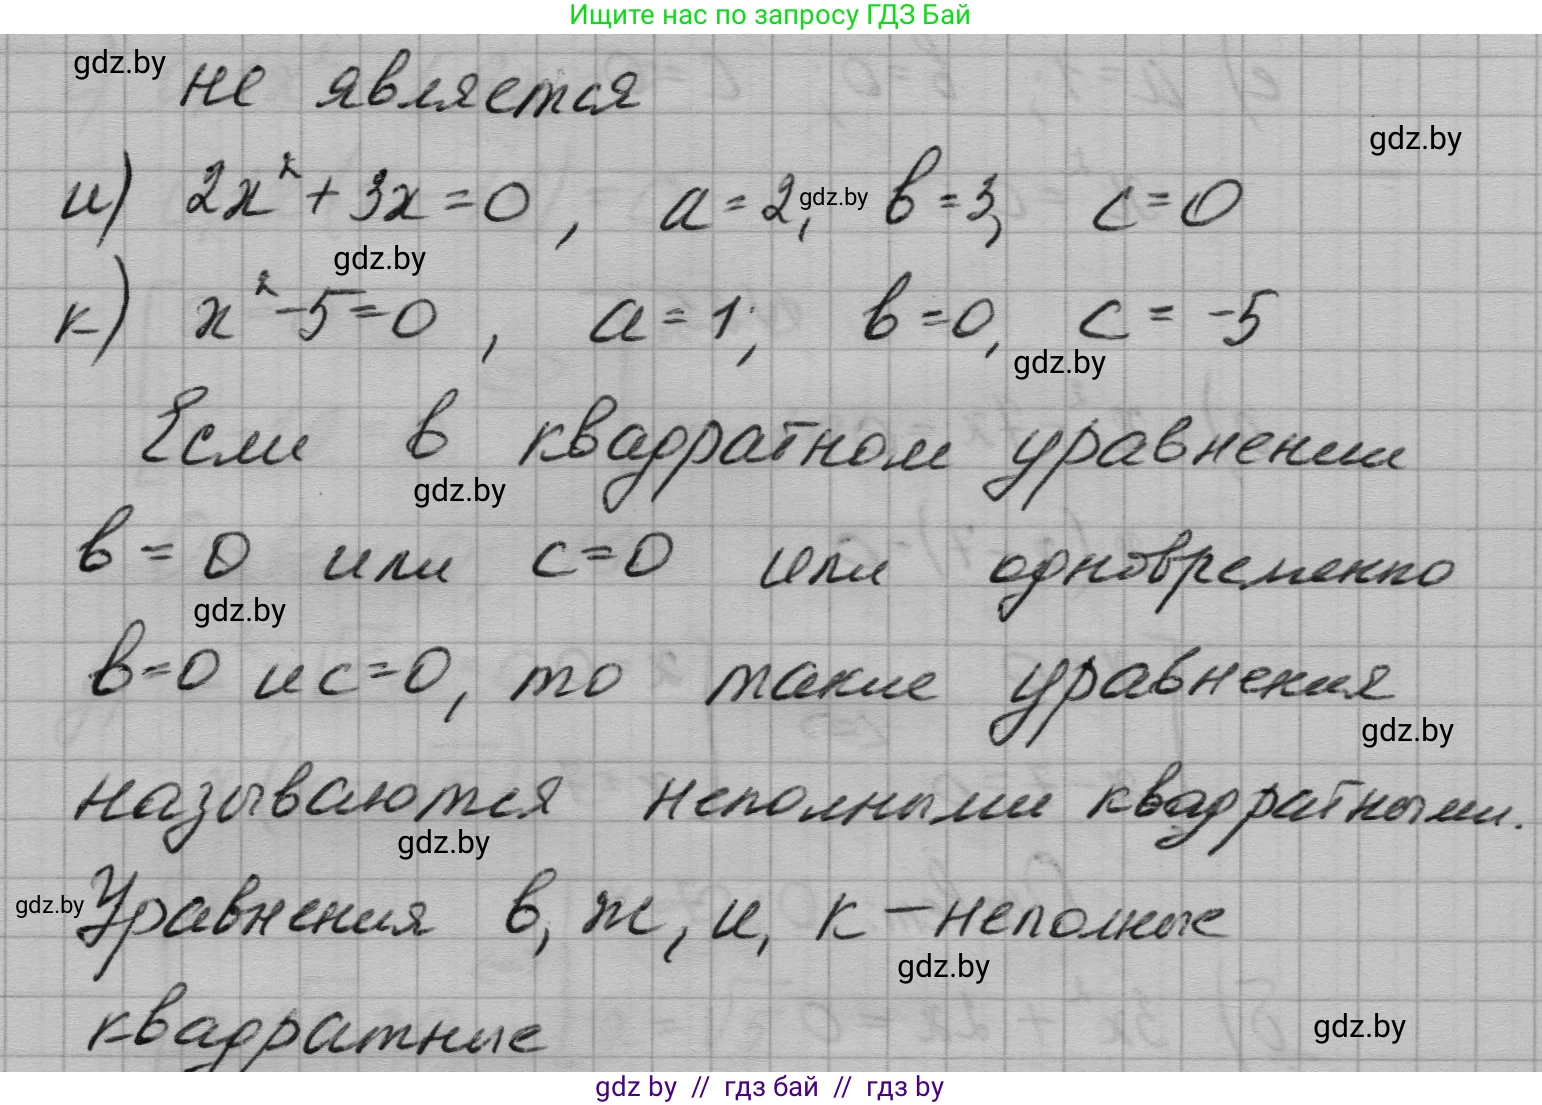 Ищите нас по запросу ГДЗ Бай
gdz.by не является
gdz.by
и) 2x² + 3x = 0, a = 2, gdz.by в = 3, c = 0
gdz.by
к) x² - 5 = 0, a = 1; в = 0, c = -5
gdz.by
Если в квадратном уравнении
gdz.by
в = 0 или c = 0 или одновременно
gdz.by
в = 0 и c = 0, то такие уравнения
gdz.by
называются неполными квадратными.
gdz.by
gdz.by Уравнения в, ж, и, к – неполные
gdz.by
квадратные gdz.by
gdz by // гдз бай // гдз by